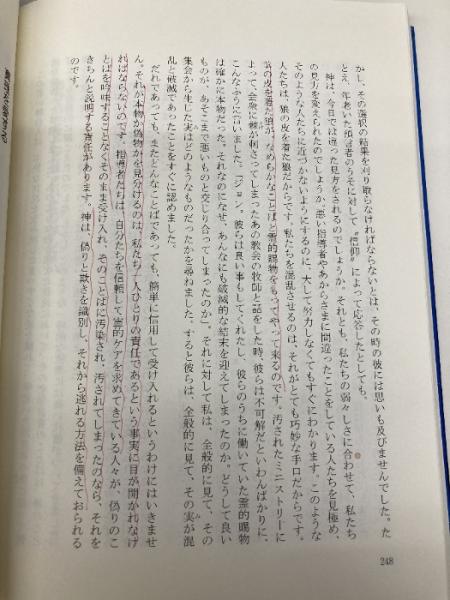 かし、その選択の結果を刈り取らなければならないとは、その時の彼には思いも及びませんでした。た
とえ、年老いた預言者のうそに対して〝信仰〟によって応答したとしても。
神は、今日では違った見方をされるのでしょうか。それとも、私たちの弱々しさに合わせて、私たち
の見方を変えられたのでしょうか。悪い指導者やあからさまに間違ったことをしている人たちを見極め、
そのような人たちに近づかないようにするのに、大して努力しなくてもすぐにわかります。このような
人たちは、狼の皮を着た狼だからです。私たちを混乱させるのは、それがとても巧妙な手口だからです。
羊の皮を着た狼が、なめらかなことばと霊的賜物をもってやって来るのです。汚されたミニストリーに
よって、会衆に棘が刺さってしまったあの教会の牧師と話をした時、彼らは不可解だといわんばかりに、
こんなふうに言いました。「ジョン。彼らは良い事もしてくれたし、彼らのうちに働いていた霊的賜物
は確かに本物だった。それなのになぜ、あんなにも破滅的な結末を迎えてしまったのか。どうして良い
ものが、あそこまで悪いものと交じり合ってしまったのか」。それに対して私は、全般的に見て、その
集会から生じた実はどのようなものだったかを尋ねました。すると彼らは、全般的に見て、その実が混
乱と破滅であったことをすぐに認めました。
だれであっても、またどんなことばであっても、簡単に信用して受け入れるというわけにはいきませ
ん。それが本物か偽物かを見分けるのは、私たち一人ひとりの責任であるという事実に目が開かれなけ
ればならないのです。指導者たちは、自分たちを信頼して霊的ケアを求めてきている人々が、偽りのこ
とばを吟味することなくそのまま受け入れ、そのことばに汚染され、汚されてしまったのなら、それを
きちんと説明する責任があります。神は、偽りと欺きを識別し、それから逃れる方法を備えておられる
のです。
248